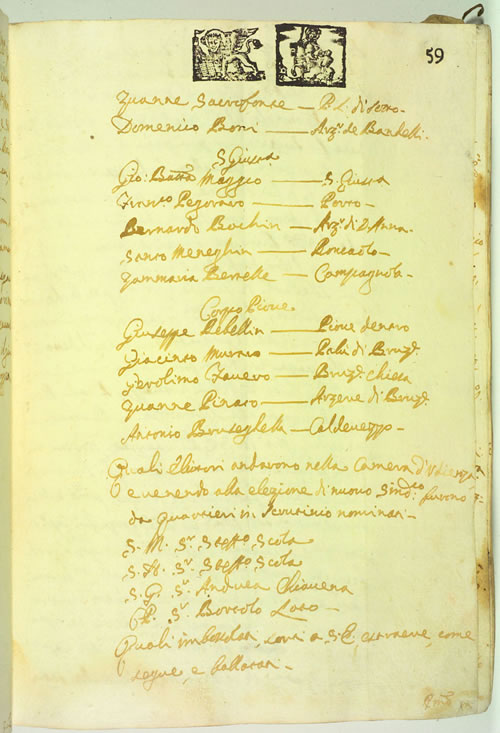 59
Zuanne Sacrofonte — P. L. di sotto.
Domenico Boni — Arz.e de Bardelli.
S. Giusta
Gio: Batta Maggio — S. Giusta
Pegoraro — Porto.
Bernardo Bochin — Arz.e di D. Anna.
Santo Meneghin — Roncaolo.
Zammaria Perrelle — Campagnola.
Corpo Piove
Giuseppe Rebellin — Piove dentro
Giacinto — di Brug.e
Gerolimo Favero — Brug.e Chiesa
Zuanne Pinato — Arzere di Brug.e
Antonio Bruseghella — Caldevegzo.
Quali Elettori andarono nella Camera d'Udienza
E venendo alla elezione di nuovo Sind.co furono
da Quartieri in Scrutinio nominati.
S. M. S.r Steff.o Scola
S. N. S.r Steff.o Scola
S. G. S.r Andrea Chiavena
C. P. S.r Bortolo Loro
Quali imbossolati, sorti a S. E. estraere, come
segue, e ballotati.